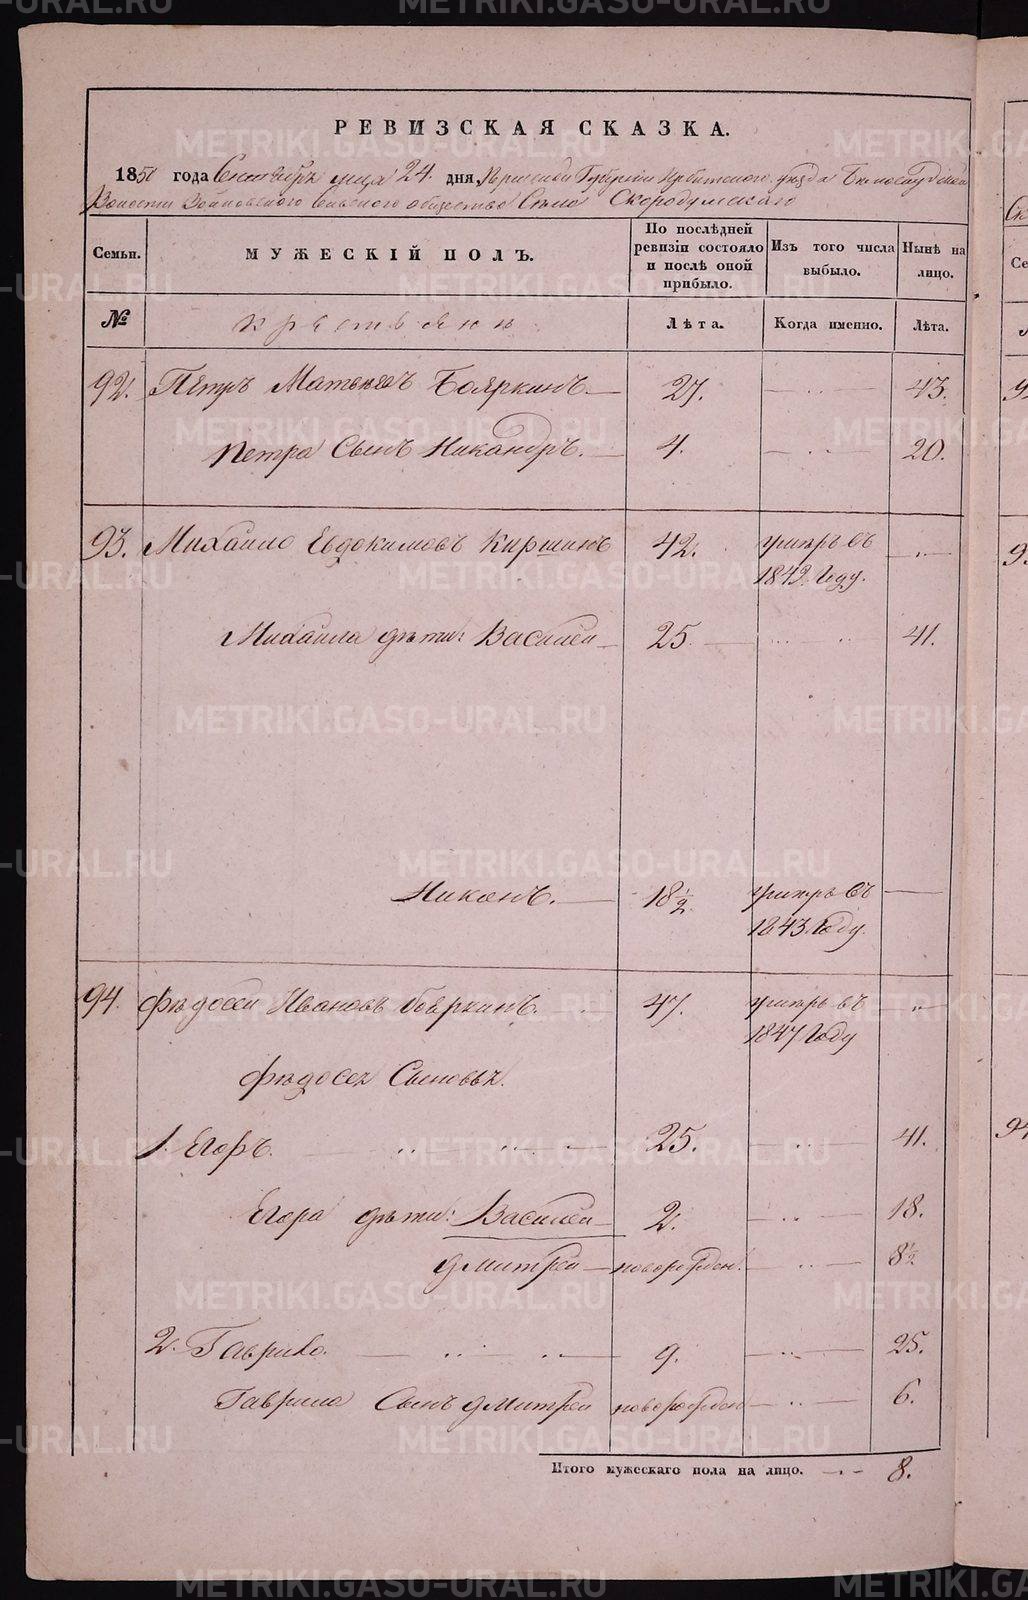 METRIKI.GASO-URAL.RU
РЕВИЗСКАЯ СКАЗКА.
1850 года Сентября м-ца 24. дня, Пермской Губернии Ирбитскаго уезда Белослудской
Волости Сельскаго общества Скородумскаго
Семьи. МУЖЕСКІЙ ПОЛЪ. По послѣдней ревизіи состояло и послѣ оной прибыло. Изъ того числа выбыло. Нынѣ на лицо.
№ Крестьяне Лѣта. Когда именно. Лѣта.
92. Петръ Матвеевъ Бояркинъ. 27. 43.
Петра Сынъ Никандръ. 4. 20.
93. Михайло Евдокимовъ Киршинъ 42. умеръ въ
1842 Году.
Михаила дѣти: Василей 25. 41.
Никонъ. 18½ умеръ въ
1843 Году.
94. Федосей Ивановъ Бояркинъ. 47. умеръ въ
1847 Году
Федосея Сыновья.
1. Егоръ. 25. 41.
Егора дѣти: Василей 2. 18.
Дмитрей новорожден. 8½
2. Гаврило. 9. 25.
Гаврила Сынъ Дмитрей новорожден 6.
Итого мужескаго пола на лицо. 8.